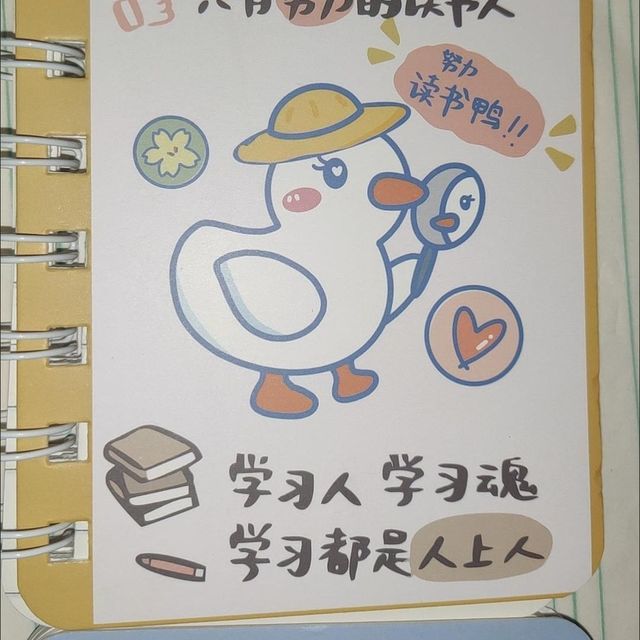 03 只有努力的读书人
努力
读书鸭!!
学习人 学习魂
学习都是人上人